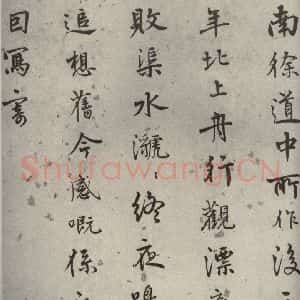 南徐道中所作後
年北上舟行觀漂
敗渠水終夜
追想舊今感嘅係
寫寄
Shufawang.CN